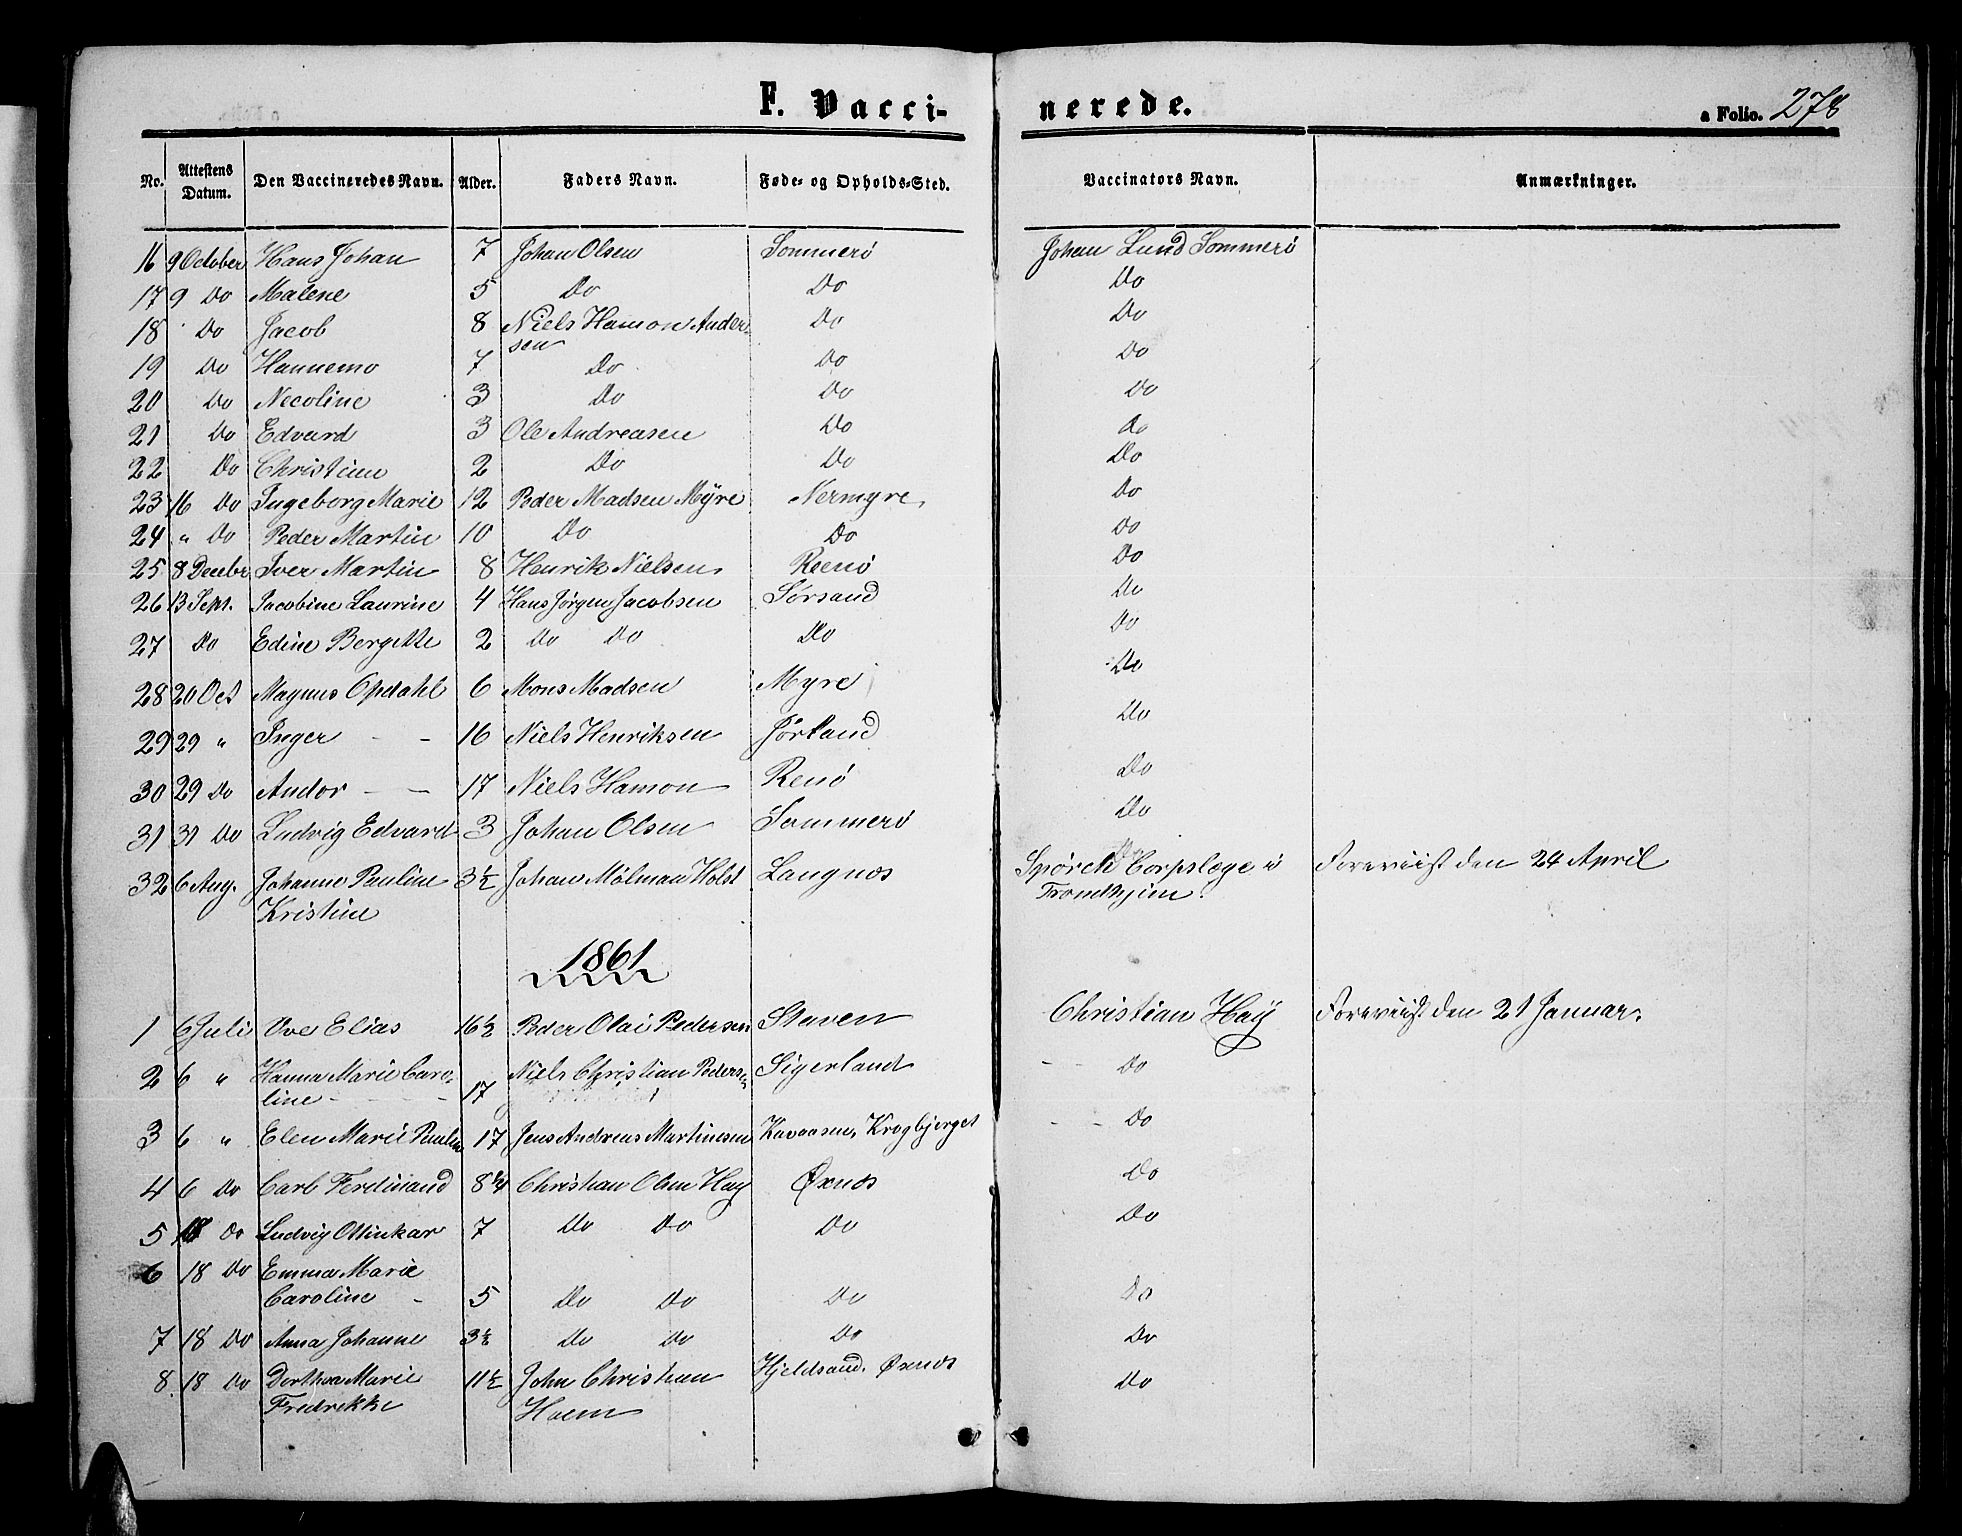 F. Vacci- nerede.
a Folio. 278
No. Attestens Datum. Den Vaccineredes Navn. Alder. Faders Navn. Føde- og Opholds-Sted. Vaccinators Navn. Anmærkninger.
16 9 October Hans Johan 7 Johan Olsen Sommerö Johan Lund Sommerö
17 9 Do Malene 5 Do Do Do
18 Do Jacob 8 Niels Hamon Ander- Do Do
sen
19 Do Hannemo 7 Do Do Do
20 Do Necoline 3 Do Do Do
21 Do Edvard 3 Ole Andreasen Do Do
22 Do Christian 2 Do Do Do
23 16 Do Ingeborg Marie 12 Peder Madsen Myre Nermyre, Do
24 " Do Peder Martin 10 Do Do Do
25 8 Decebr Iver Martin 8 Henrik Nielsen Reenö Do
26 13 Sept. Jacobine Laurine 4 Hans Jørgen Jacobsen Sørsand Do
27 Do Edine Bergitte 2 Do Do Do Do
28 20 Oct Magnus Opdahl 6 Mons Madsen Myre Do
29 29 " Inger - - 16 Niels Henriksen Jörland Do
30 29 Do Andor - - 17 Niels Hamon Renö Do
31 31 Do Ludvig Edvard 3 Johan Olsen Sommerö Do
32 6 Aug. Johanne Pauline 3½ Johan Mölman Holst Langnæs Spörck Corpslæge i Foreviist den 24 April
Kristine Trondhjem.
1861
1 6 Juli Ove Elias 16½ Peder Olai Pedersen Staven Christian Haÿ Foreviist den 21 Januar.
2 6 " Hanna Marie Caro- Niels Christian Peders Sigerland Do
line - - - 17
3 6 " Elen Marie Paulin 17 Jens Andreas Martinesen Kavaasen, Krogbjerget Do
4 6 Do Carl Ferdinand 8¼ Christian Olsen Hay Øxnæs Do
5 18 Do Ludvig Ottinkar 7 Do Do Do Do
6 18 Do Emma Marie
Caroline - 5 Do Do Do Do
7 18 Do Anna Johanne 3½ Do Do Do Do
8 18 Do Dorthea Marie 11½ John Christian Hjeldsand. Øxnæs Do
Fredrekke Holm